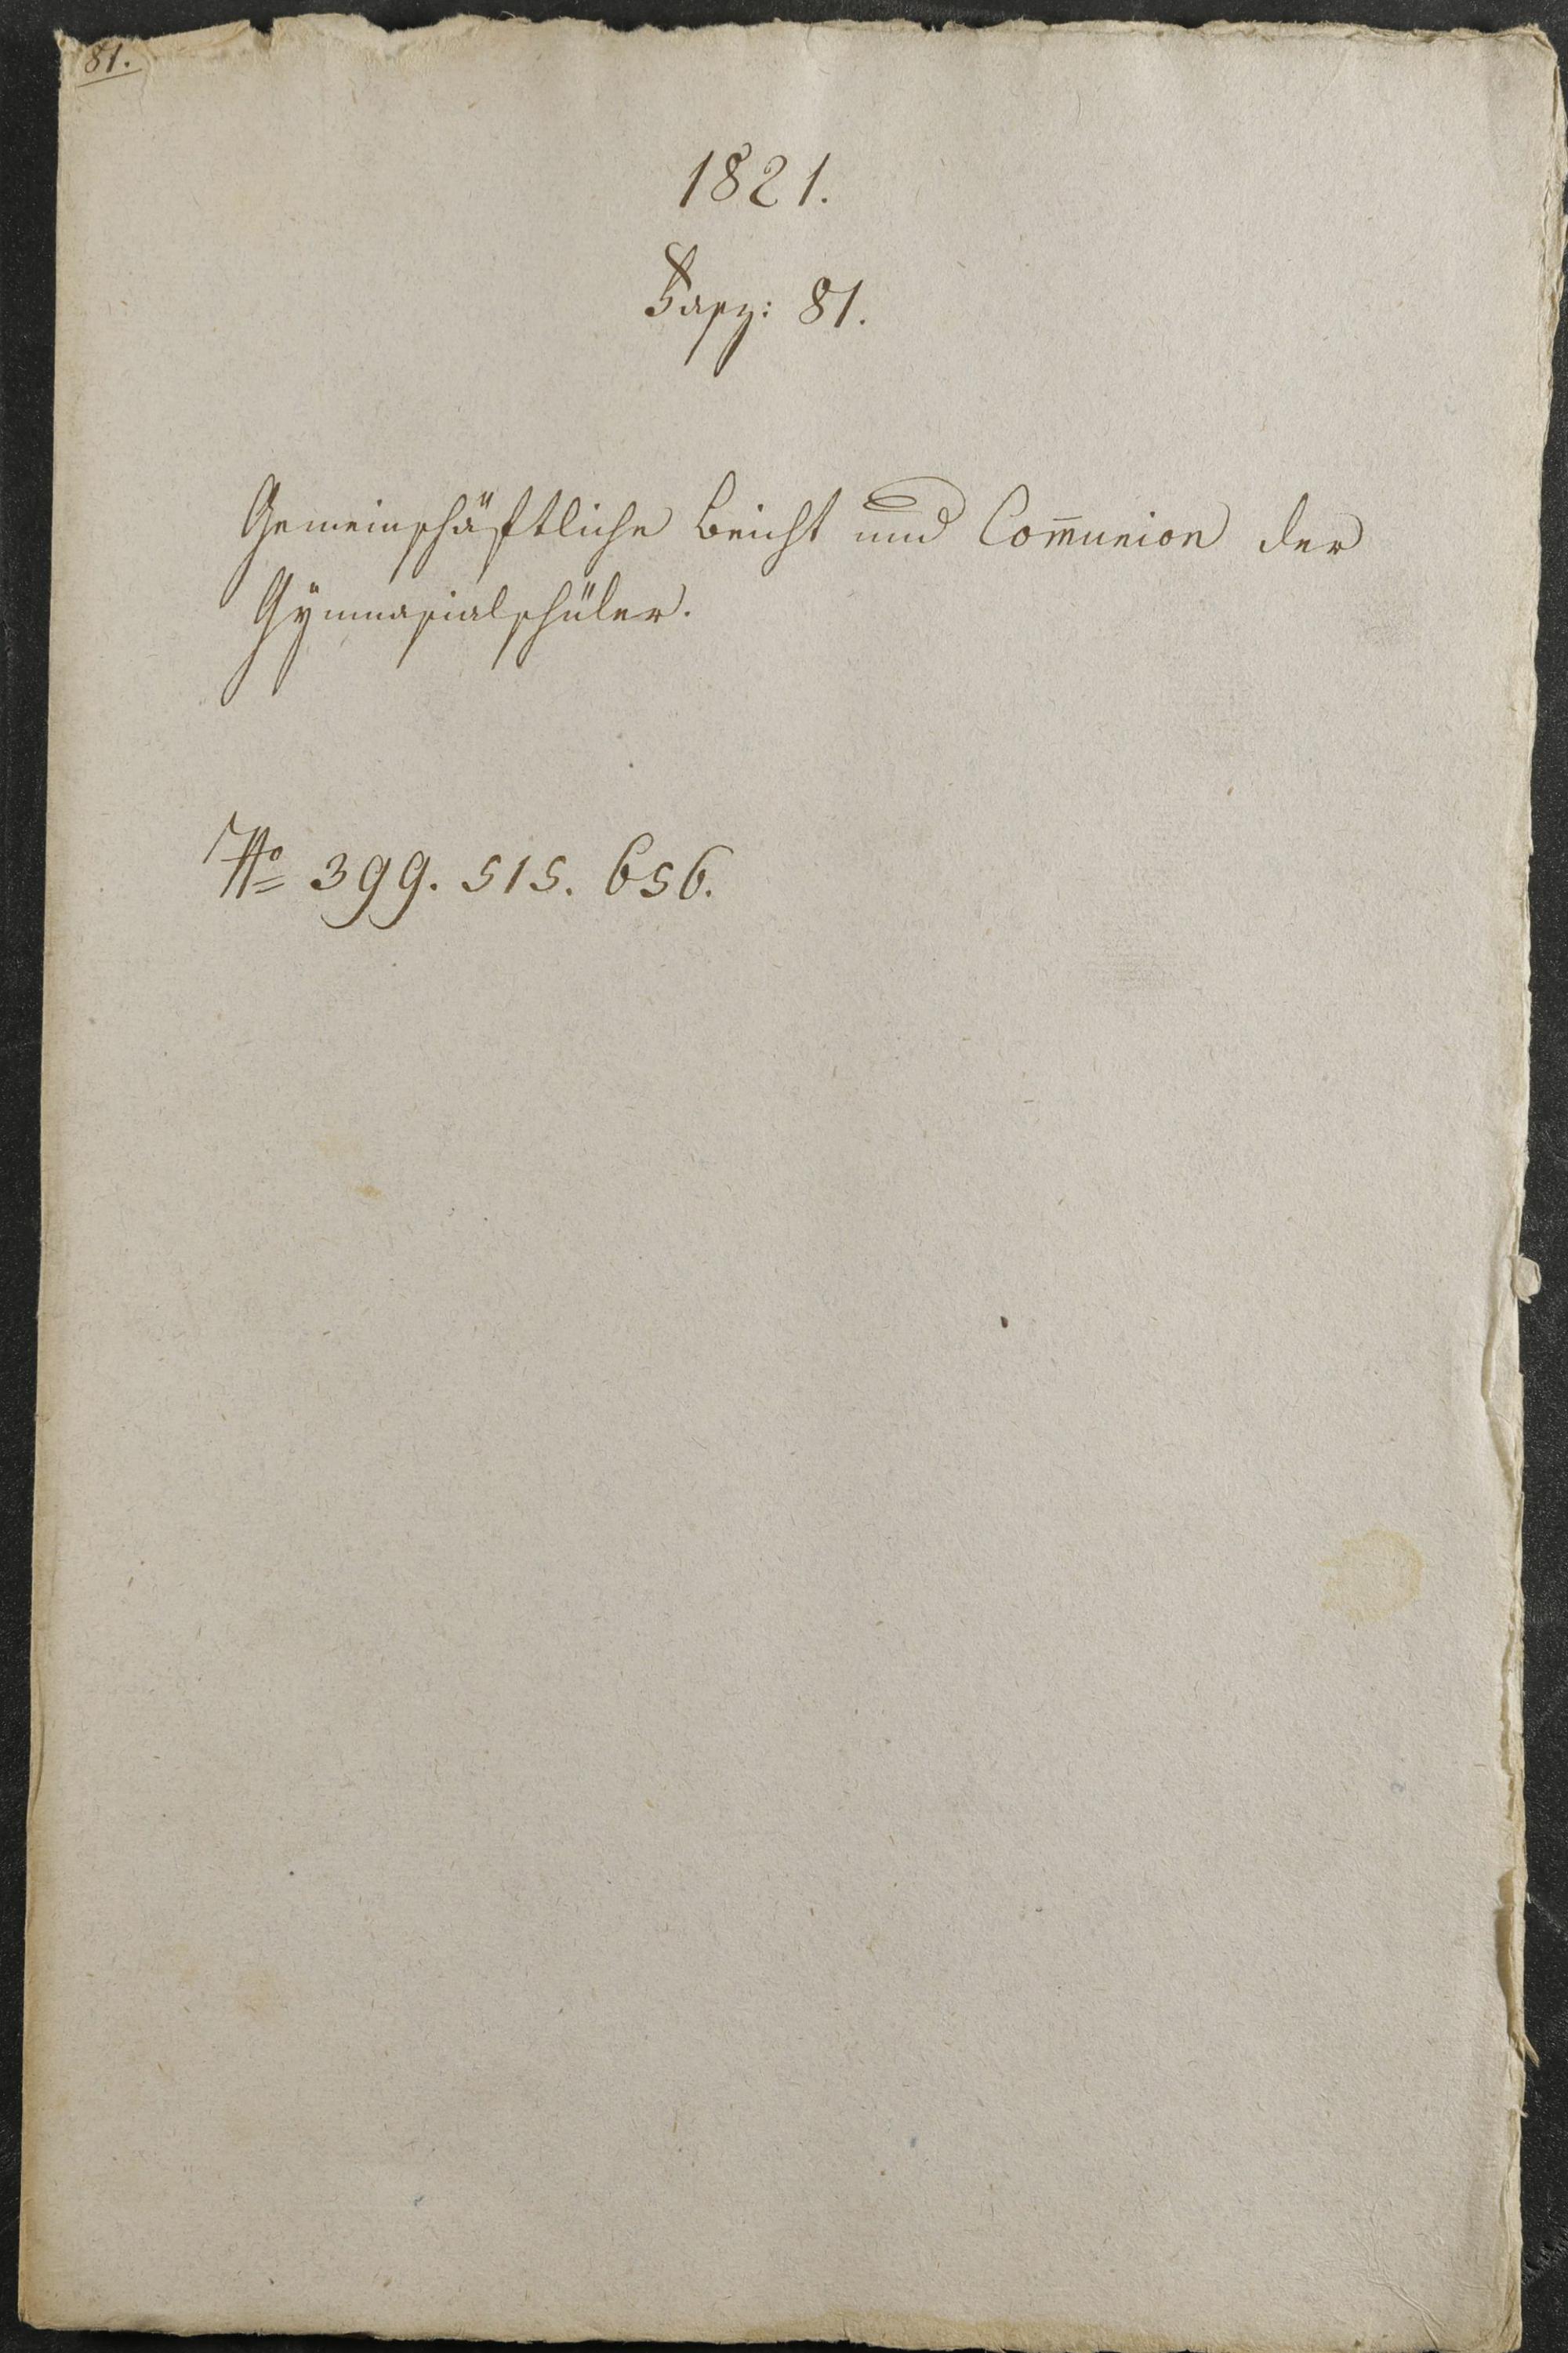 81.
1821.
Fasz: 81.
Gemeinschäftliche Beicht und Com̅union der
Gÿmnasialschüler.
No 399. 515. 656.